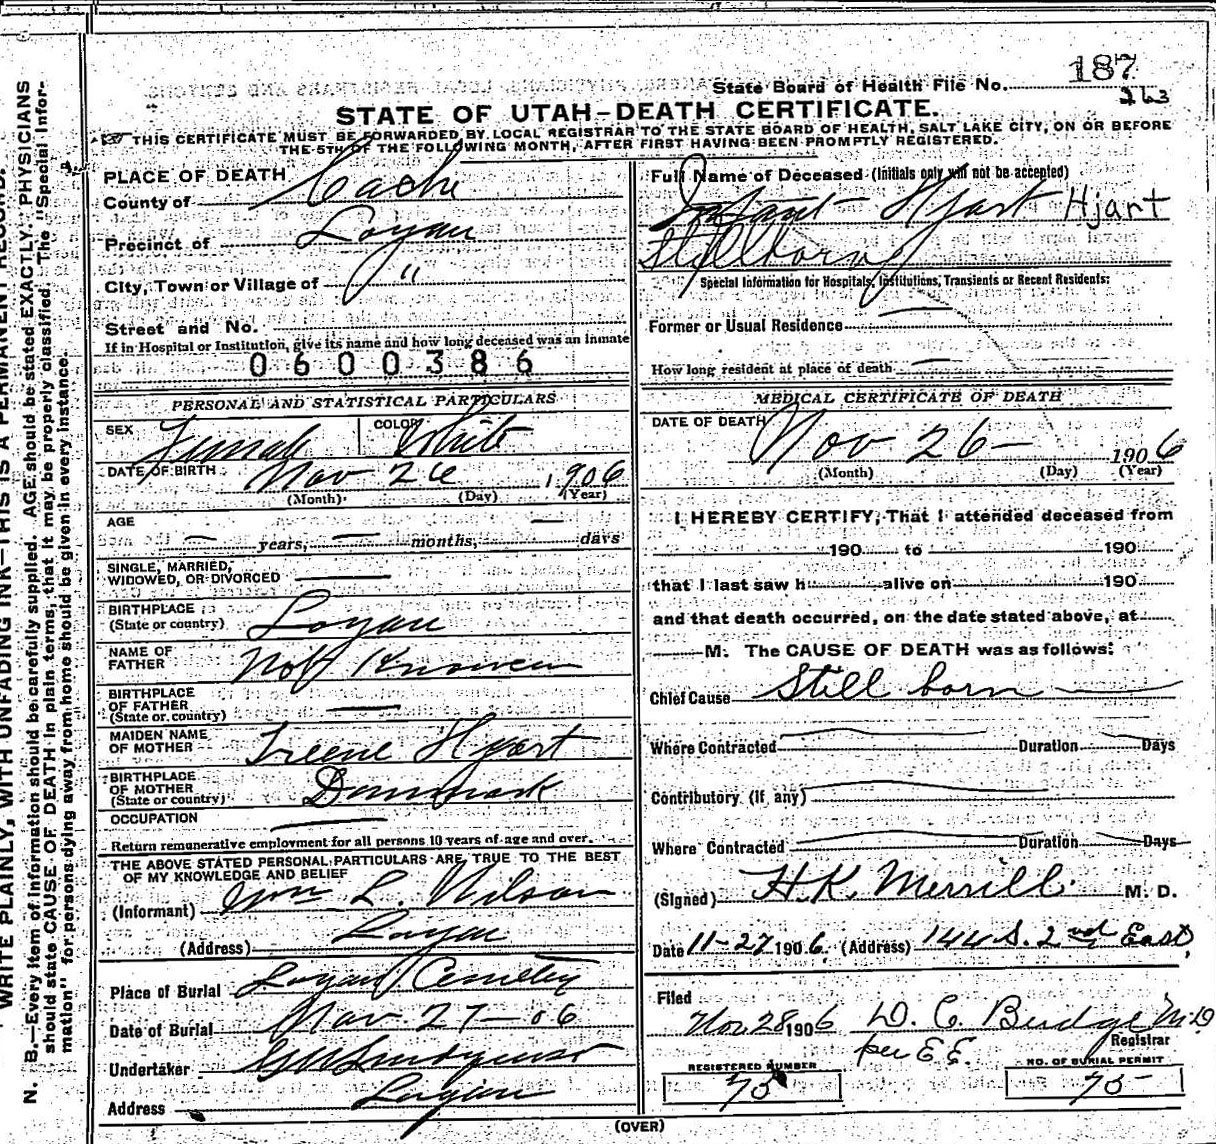 State Board of Health File No. 187
263
STATE OF UTAH–DEATH CERTIFICATE.
THIS CERTIFICATE MUST BE FORWARDED BY LOCAL REGISTRAR TO THE STATE BOARD OF HEALTH, SALT LAKE CITY, ON OR BEFORE
THE 5TH OF THE FOLLOWING MONTH, AFTER FIRST HAVING BEEN PROMPTLY REGISTERED.
PLACE OF DEATH
County of Cache
Precinct of Logan
City, Town or Village of "
Street and No.
If in Hospital or Institution, give its name and how long deceased was an inmate
0600386
PERSONAL AND STATISTICAL PARTICULARS
SEX Female COLOR White
DATE OF BIRTH Nov 26 1906
(Month) (Day) (Year)
AGE
— years, — months, — days
SINGLE, MARRIED,
WIDOWED, OR DIVORCED —
BIRTHPLACE
(State or country) Logan
NAME OF
FATHER Not Known
BIRTHPLACE
OF FATHER
(State or country) —
MAIDEN NAME
OF MOTHER Ireene Hjart
BIRTHPLACE
OF MOTHER
(State or country) Denmark
OCCUPATION —
Return remunerative employment for all persons 10 years of age and over.
THE ABOVE STATED PERSONAL PARTICULARS ARE TRUE TO THE BEST
OF MY KNOWLEDGE AND BELIEF
(Informant) Wm L. Nilson
(Address) Logan
Place of Burial Logan Cemetery
Date of Burial Nov. 27 – 06
Undertaker
Address Logan
Full Name of Deceased (Initials only will not be accepted)
Infant Hjart Hjart
Stillborn
Special Information for Hospitals, Institutions, Transients or Recent Residents:
Former or Usual Residence —
How long resident at place of death —
MEDICAL CERTIFICATE OF DEATH
DATE OF DEATH
Nov 26 – 1906
(Month) (Day) (Year)
I HEREBY CERTIFY, That I attended deceased from
190 to 190
that I last saw h alive on 190
and that death occurred, on the date stated above, at
M. The CAUSE OF DEATH was as follows:
Chief Cause Still born —
Where Contracted — Duration — Days
Contributory (if any) —
Where Contracted — Duration — Days
(Signed) H.K. Merrill. M. D.
Date 11-27 1906. (Address) 144 S. 2nd East,
Filed
Nov. 28 1906 D. C. Budge M.D
Registrar
per E.E.
REGISTERED NUMBER
75
NO. OF BURIAL PERMIT
75
(OVER)
WRITE PLAINLY, WITH UNFADING INK—THIS IS A PERMANENT RECORD.
N. B.—Every item of information should be carefully supplied. AGE should be stated EXACTLY. PHYSICIANS
should state CAUSE OF DEATH in plain terms, that it may be properly classified. The "Special Infor-
mation" for persons dying away from home should be given in every instance.